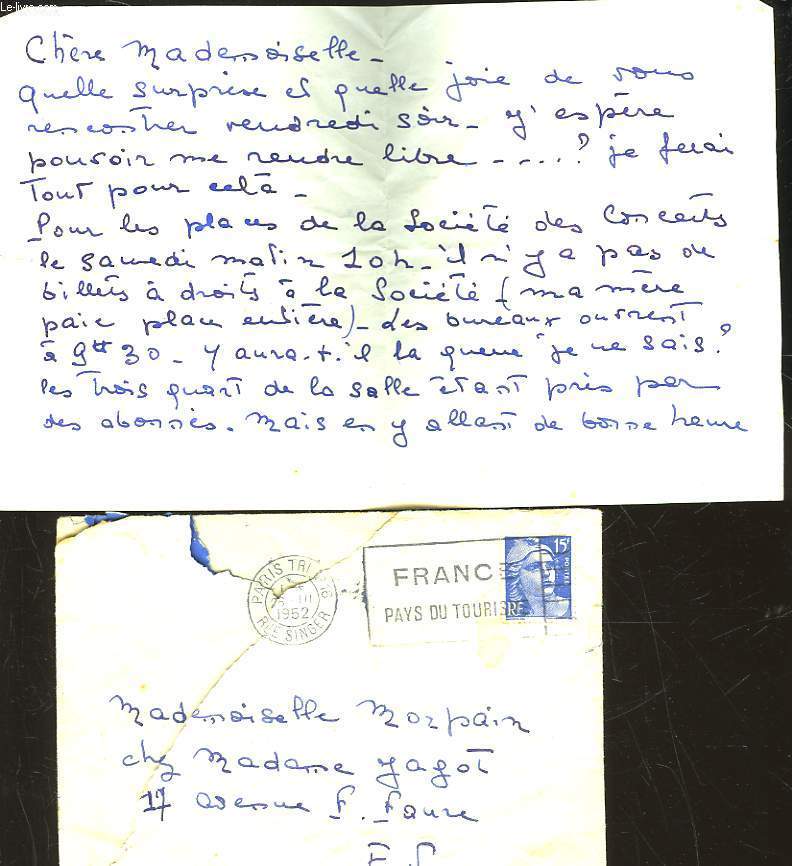 Le-livre.com
Chère Mademoiselle -
quelle surprise et quelle joie de vous
rencontrer vendredi soir - j'espère
pouvoir me rendre libre - ....? je ferai
Tout pour celà -
Pour les places de la Société des Concerts
le samedi matin 10h - il n'y a pas de
billets à droits à la Société - (ma mère
paie place entière) - Les bureaux ouvrent
à 9H 30 - Y aura-t-il la queue je ne sais?
les trois quart de la salle étant pris par
des abonnés. Mais en y allant de bonne heure
PARIS TRI
III
1952
RUE SINGER
FRANCE
PAYS DU TOURISME
15F
Mademoiselle Morpain
chez Madame Jagot
17 avenue F. Faure